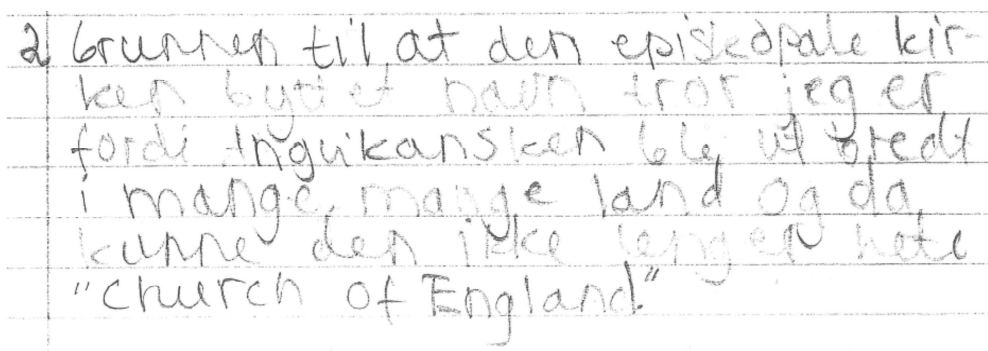 2 Grunnen til at den episkopale kir-
ken byttet navn tror jeg er
fordi Anguikansken ble ut bredt
i mange, mange land og da
kunne den ikke lenger hete
"Church of England."